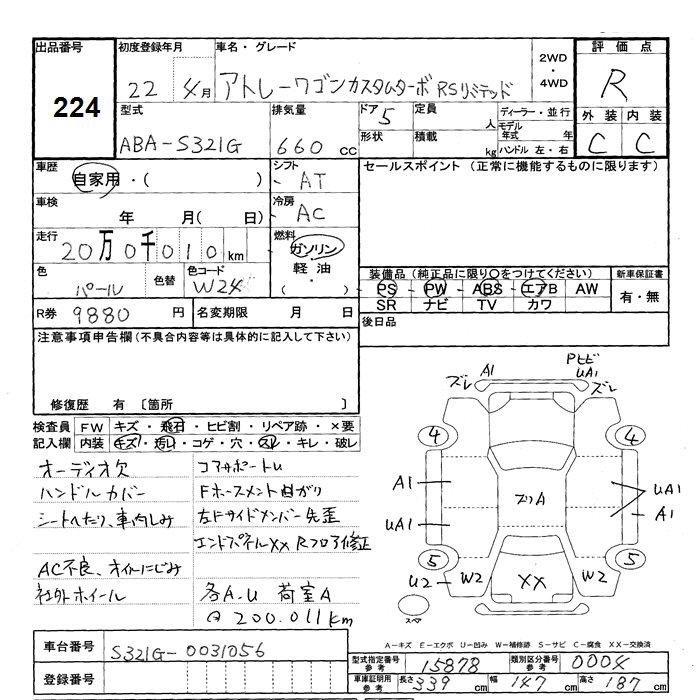 出品番号
224
初度登録年月
22 年 4月
車名・グレード
アトレーワゴンカスタムターボRSリミテッド
2WD
・
4WD
評価点
R
型式
ABA-S321G
排気量
660 cc
ドア 5
形状
定員 人
積載 kg
ディーラー・並行
モデル年式 年
ハンドル 左・右
外装 内装
C C
車歴
自家用・( )
シフト
AT
セールスポイント (正常に機能するものに限ります)
車検
年 月( 日)
冷房
AC
走行
20万0千010km
燃料
ガソリン
軽油
( )
色
パール
色替
色コード
W24
装備品(純正品に限り○をつけてください)
PS PW ABS エアB AW
SR ナビ TV カワ
新車保証書
有・無
R券 9880 円
名変期限 月 日
後日品
注意事項申告欄(不具合内容等は具体的に記入して下さい)
修復歴 有 〔箇所 〕
検査員記入欄
FW キズ・飛石・ヒビ割・リペア跡・×要
内装 キズ・汚レ・コゲ・穴・スレ・キレ・破レ
オーディオ欠
ハンドルカバー
シートへたり、車内しみ
AC不良、オイルにじみ
社外ホイール
コアサポートU
Fホースメント曲がり
左Fサイドメンバー先歪
エンドパネルXX Rフロア修正
各A・U 荷室A
200.011km
ズレ
A1
Pヒビ
UA1
ズレ
4
4
A1
ズリA
UA1
UA1
A1
5
5
U2
W2
XX
W2
スペア
A-キズ E-エクボ U-凹み W-補修跡 S-サビ C-腐食 XX-交換済
車台番号 S321G-0031056
登録番号
型式指定番号 参考 15878
類別区分番号 参考 0004
車庫証明用 参考 長さ 339 cm 幅 147 cm 高さ 187 cm